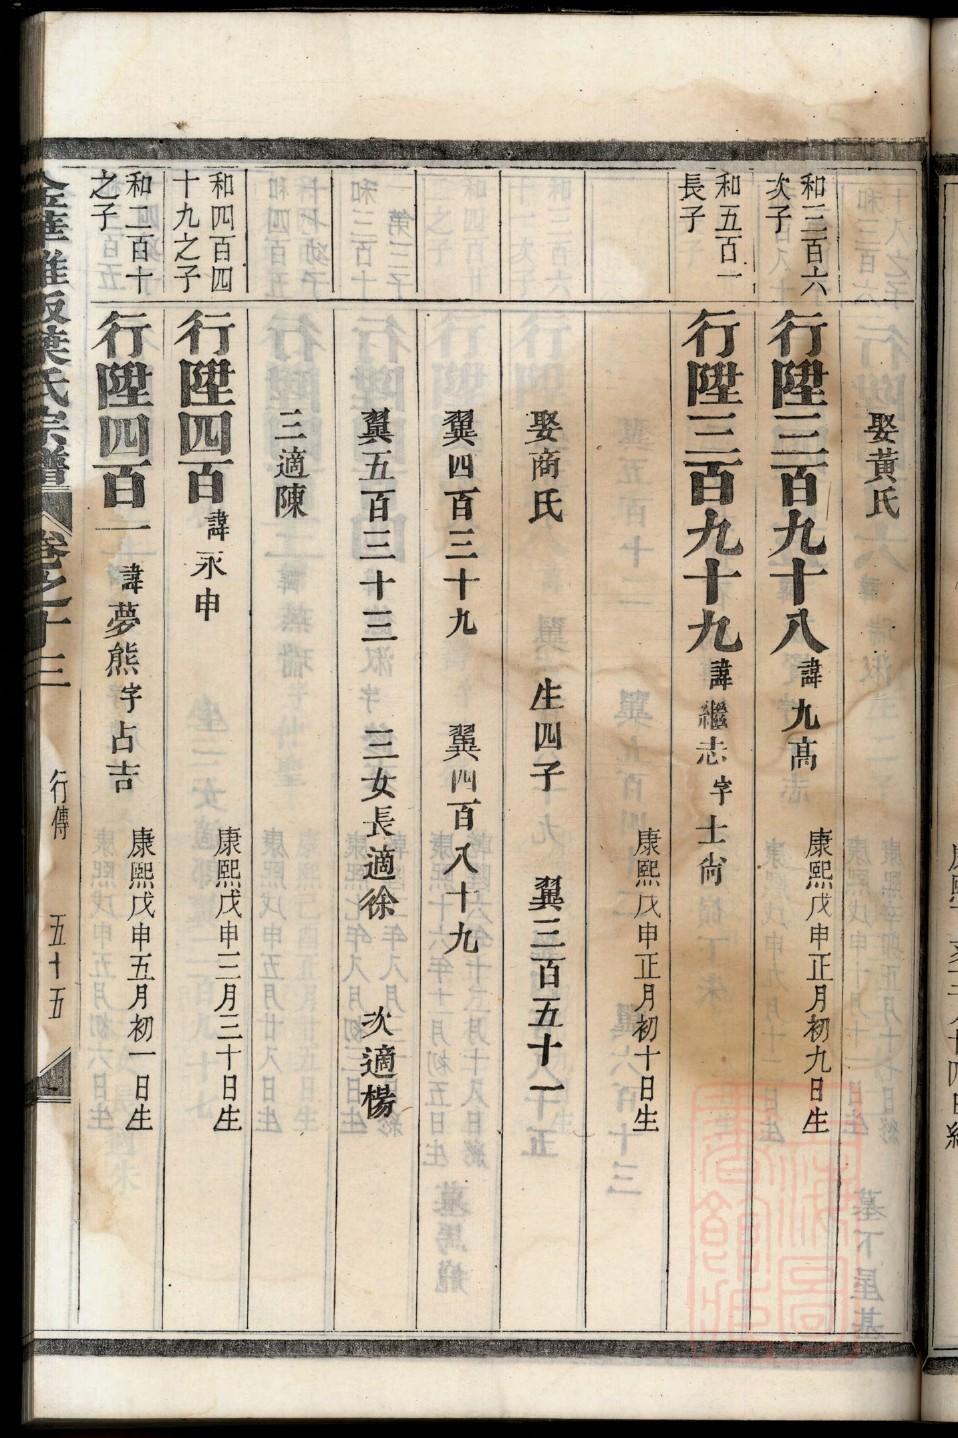 娶黃氏
和三百六
次子
行陞三百九十八 諱九高
康熙戊申正月初九日生
和五百一
長子
行陞三百九十九 諱繼志字士尙
康熙戊申正月初十日生
娶商氏 生四子 翼三百五十一
翼四百三十九 翼四百八十九
翼五百三十三 三女長適徐 次適楊
三適陳
和四百四
十九之子
行陞四百 諱永申
康熙戊申三月三十日生
和二百十
之子
行陞四百一 諱夢熊字占吉
康熙戊申五月初一日生
氏宗譜 卷之十三 行傳 五十五